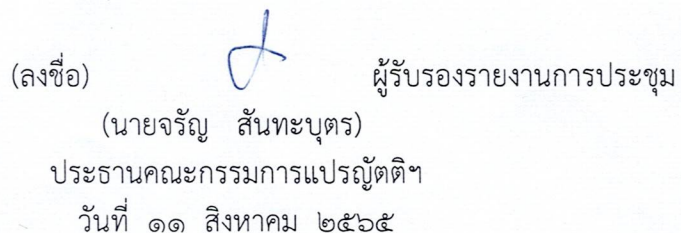 (ลงชื่อ) ผู้รับรองรายงานการประชุม
(นายจรัญ สันทะบุตร)
ประธานคณะกรรมการแปรญัตติฯ
วันที่ ๑๑ สิงหาคม ๒๕๖๕